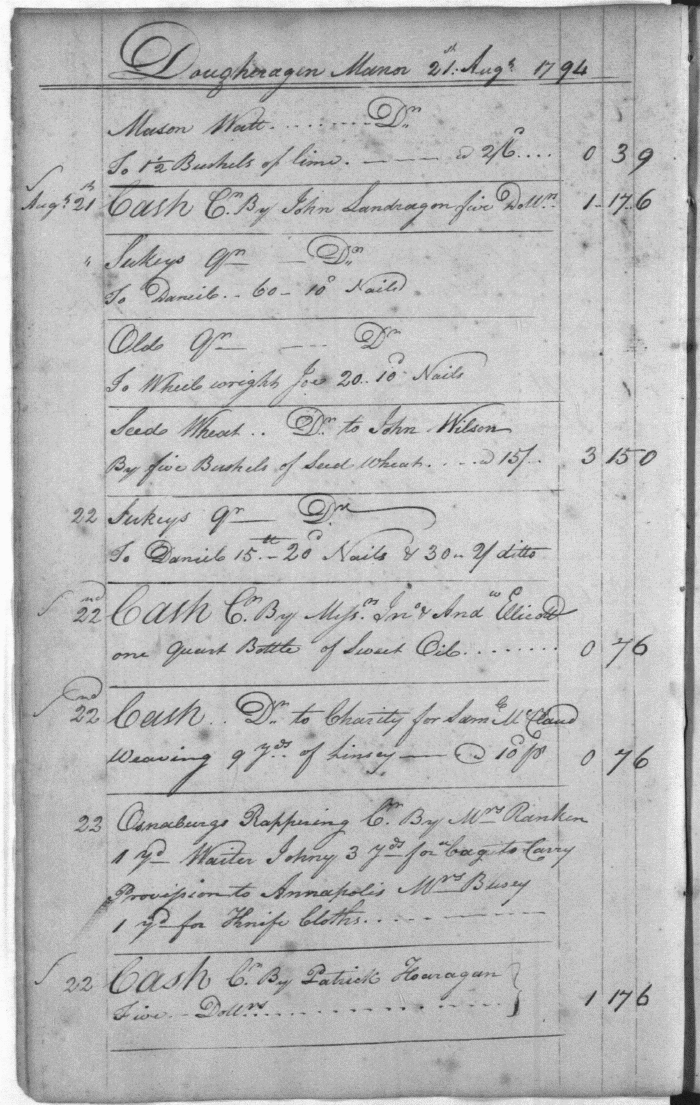 Dougheragen Manor 21st Augt 1794
Mason Watt........ Dr
To 1½ Bushels of lime. — — — @ 2/6.... 0 3 9
Augt 21st Cash Cr By John Landragon five Dollrs 1 17 6
" Sukeys Qr — — Dr
To Daniel.. 60 — 10d Nails
Olds Qr — — Dr
To Wheel wright Joe 20.. 10d Nails
Seed Wheat.. Dr to John Wilson
By five Bushels of Seed Wheat.... @ 15/. 3 15 0
22 Sukeys Qr — Dr
To Daniel 15lb — 20d Nails & 30 — ditto
22nd Cash Cr By Messrs Jno & Andw Ellicott
one Quart Bottle of Sweet Oil........ 0 7 6
22nd Cash.. Dr to Charity for Saml McClaud
Weaving 9 yds of Linsey — @ 10d 0 7 6
22 Osnaburgs Rappering Cr By Mrs Ranken
1 yd Waiter Johny 3 yds for a bag to Carry
Provision to Annapolis Mrs Busey
1 yd for Knife Cloths..
22 Cash Cr By Patrick Hoaragan
Five.. Dollrs 1 17 6